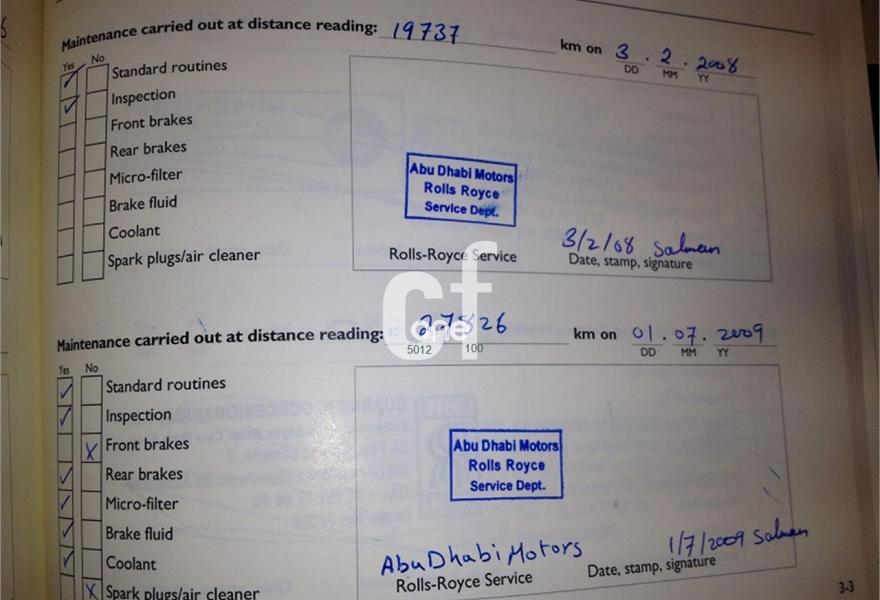 Maintenance carried out at distance reading: 19737 km on 3 . 2 . 2008
DD MM YY
Yes No
Standard routines
Inspection
Front brakes
Rear brakes
Micro-filter
Brake fluid
Coolant
Spark plugs/air cleaner
Abu Dhabi Motors
Rolls Royce
Service Dept.
3/2/08 Salman
Rolls-Royce Service
Date, stamp, signature
cf
one
5012 100
Maintenance carried out at distance reading: 27826 km on 01 . 07 . 2009
DD MM YY
Yes No
Standard routines
Inspection
Front brakes
Rear brakes
Micro-filter
Brake fluid
Coolant
Spark plugs/air cleaner
Abu Dhabi Motors
Rolls Royce
Service Dept.
Abu Dhabi Motors
1/7/2009 Salman
Rolls-Royce Service
Date, stamp, signature
3-3